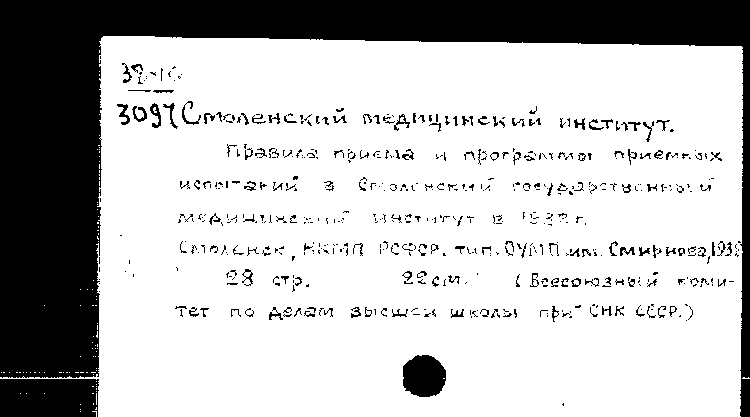 38-16
3097 Смоленский медицинский институт.
Правила приема и программы приемных
испытаний в Смоленский государственный
медицинский институт в 1938 г.
Смоленск, НКМП РСФСР. тип. ОУМП им. Смирнова, 1938
28 стр. 22 см. (Всесоюзный коми-
тет по делам высшей школы при СНК СССР.)